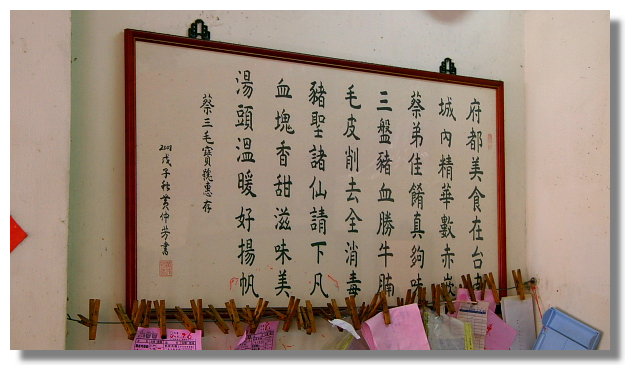 府都美食在台
城內精華數赤崁
蔡弟佳餚真夠味
三盤豬血勝牛腩
毛皮削去全消毒
豬聖諸仙請下凡
血塊香甜滋味美
湯頭溫暖好揚帆
蔡三毛寶號惠存
2008戊子秋黃仲芳書